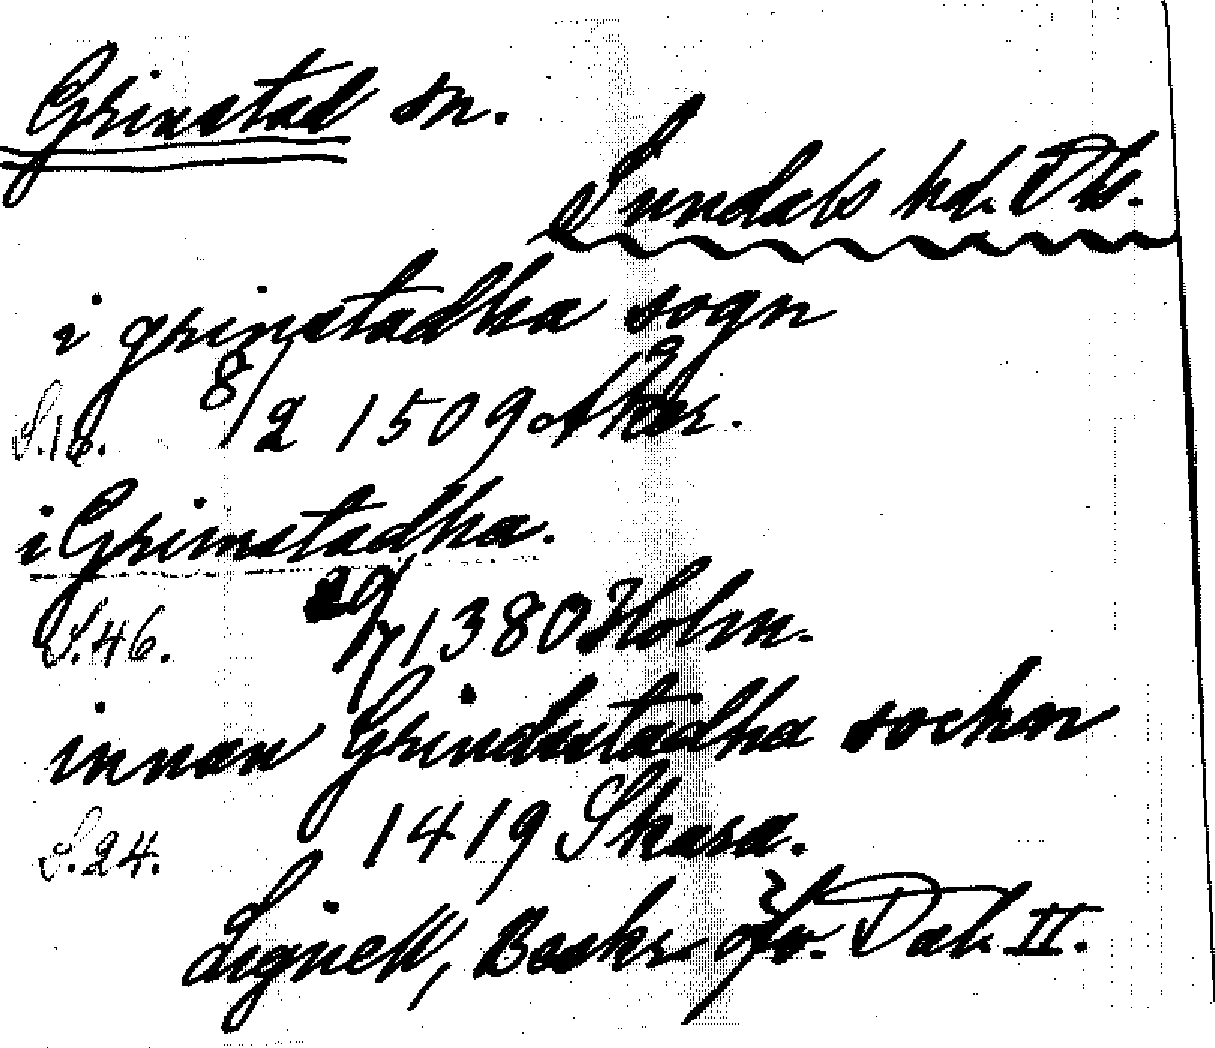 Grinstad sn.
Sundals hd. Dls.
i grinstadha sogn
S.16. 8/2 1509
i Grimstadha.
S.46. 29/7 1380 Holm.
innan Grindastadha sochn
S.24. 1419 Skara.
Lignell, Beskr. öfv. Dal. II.